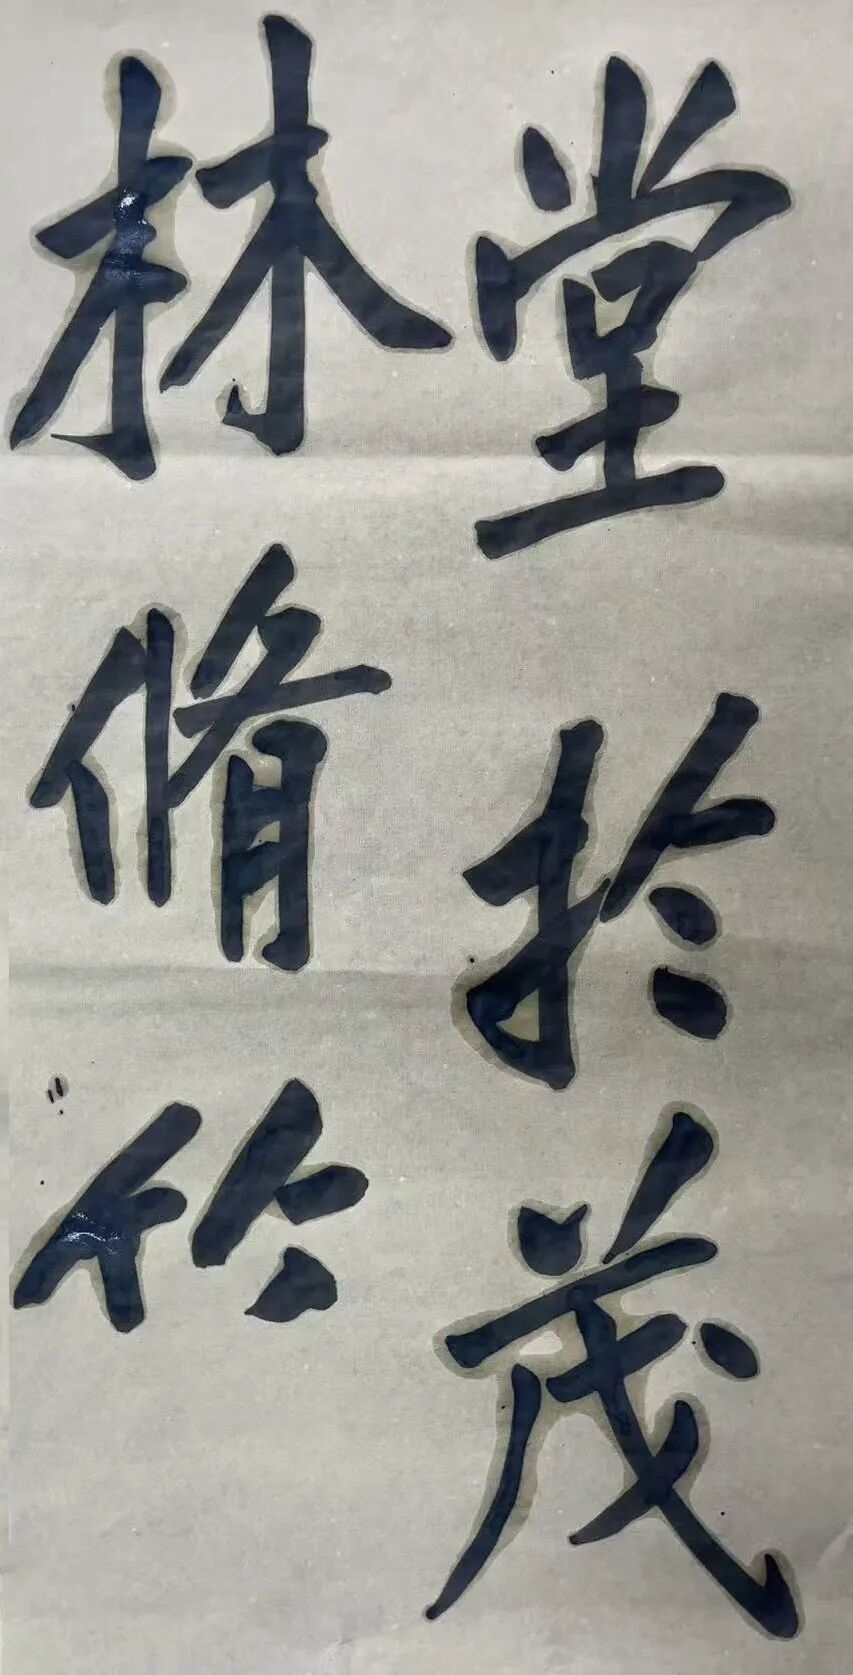 堂於茂
林脩竹